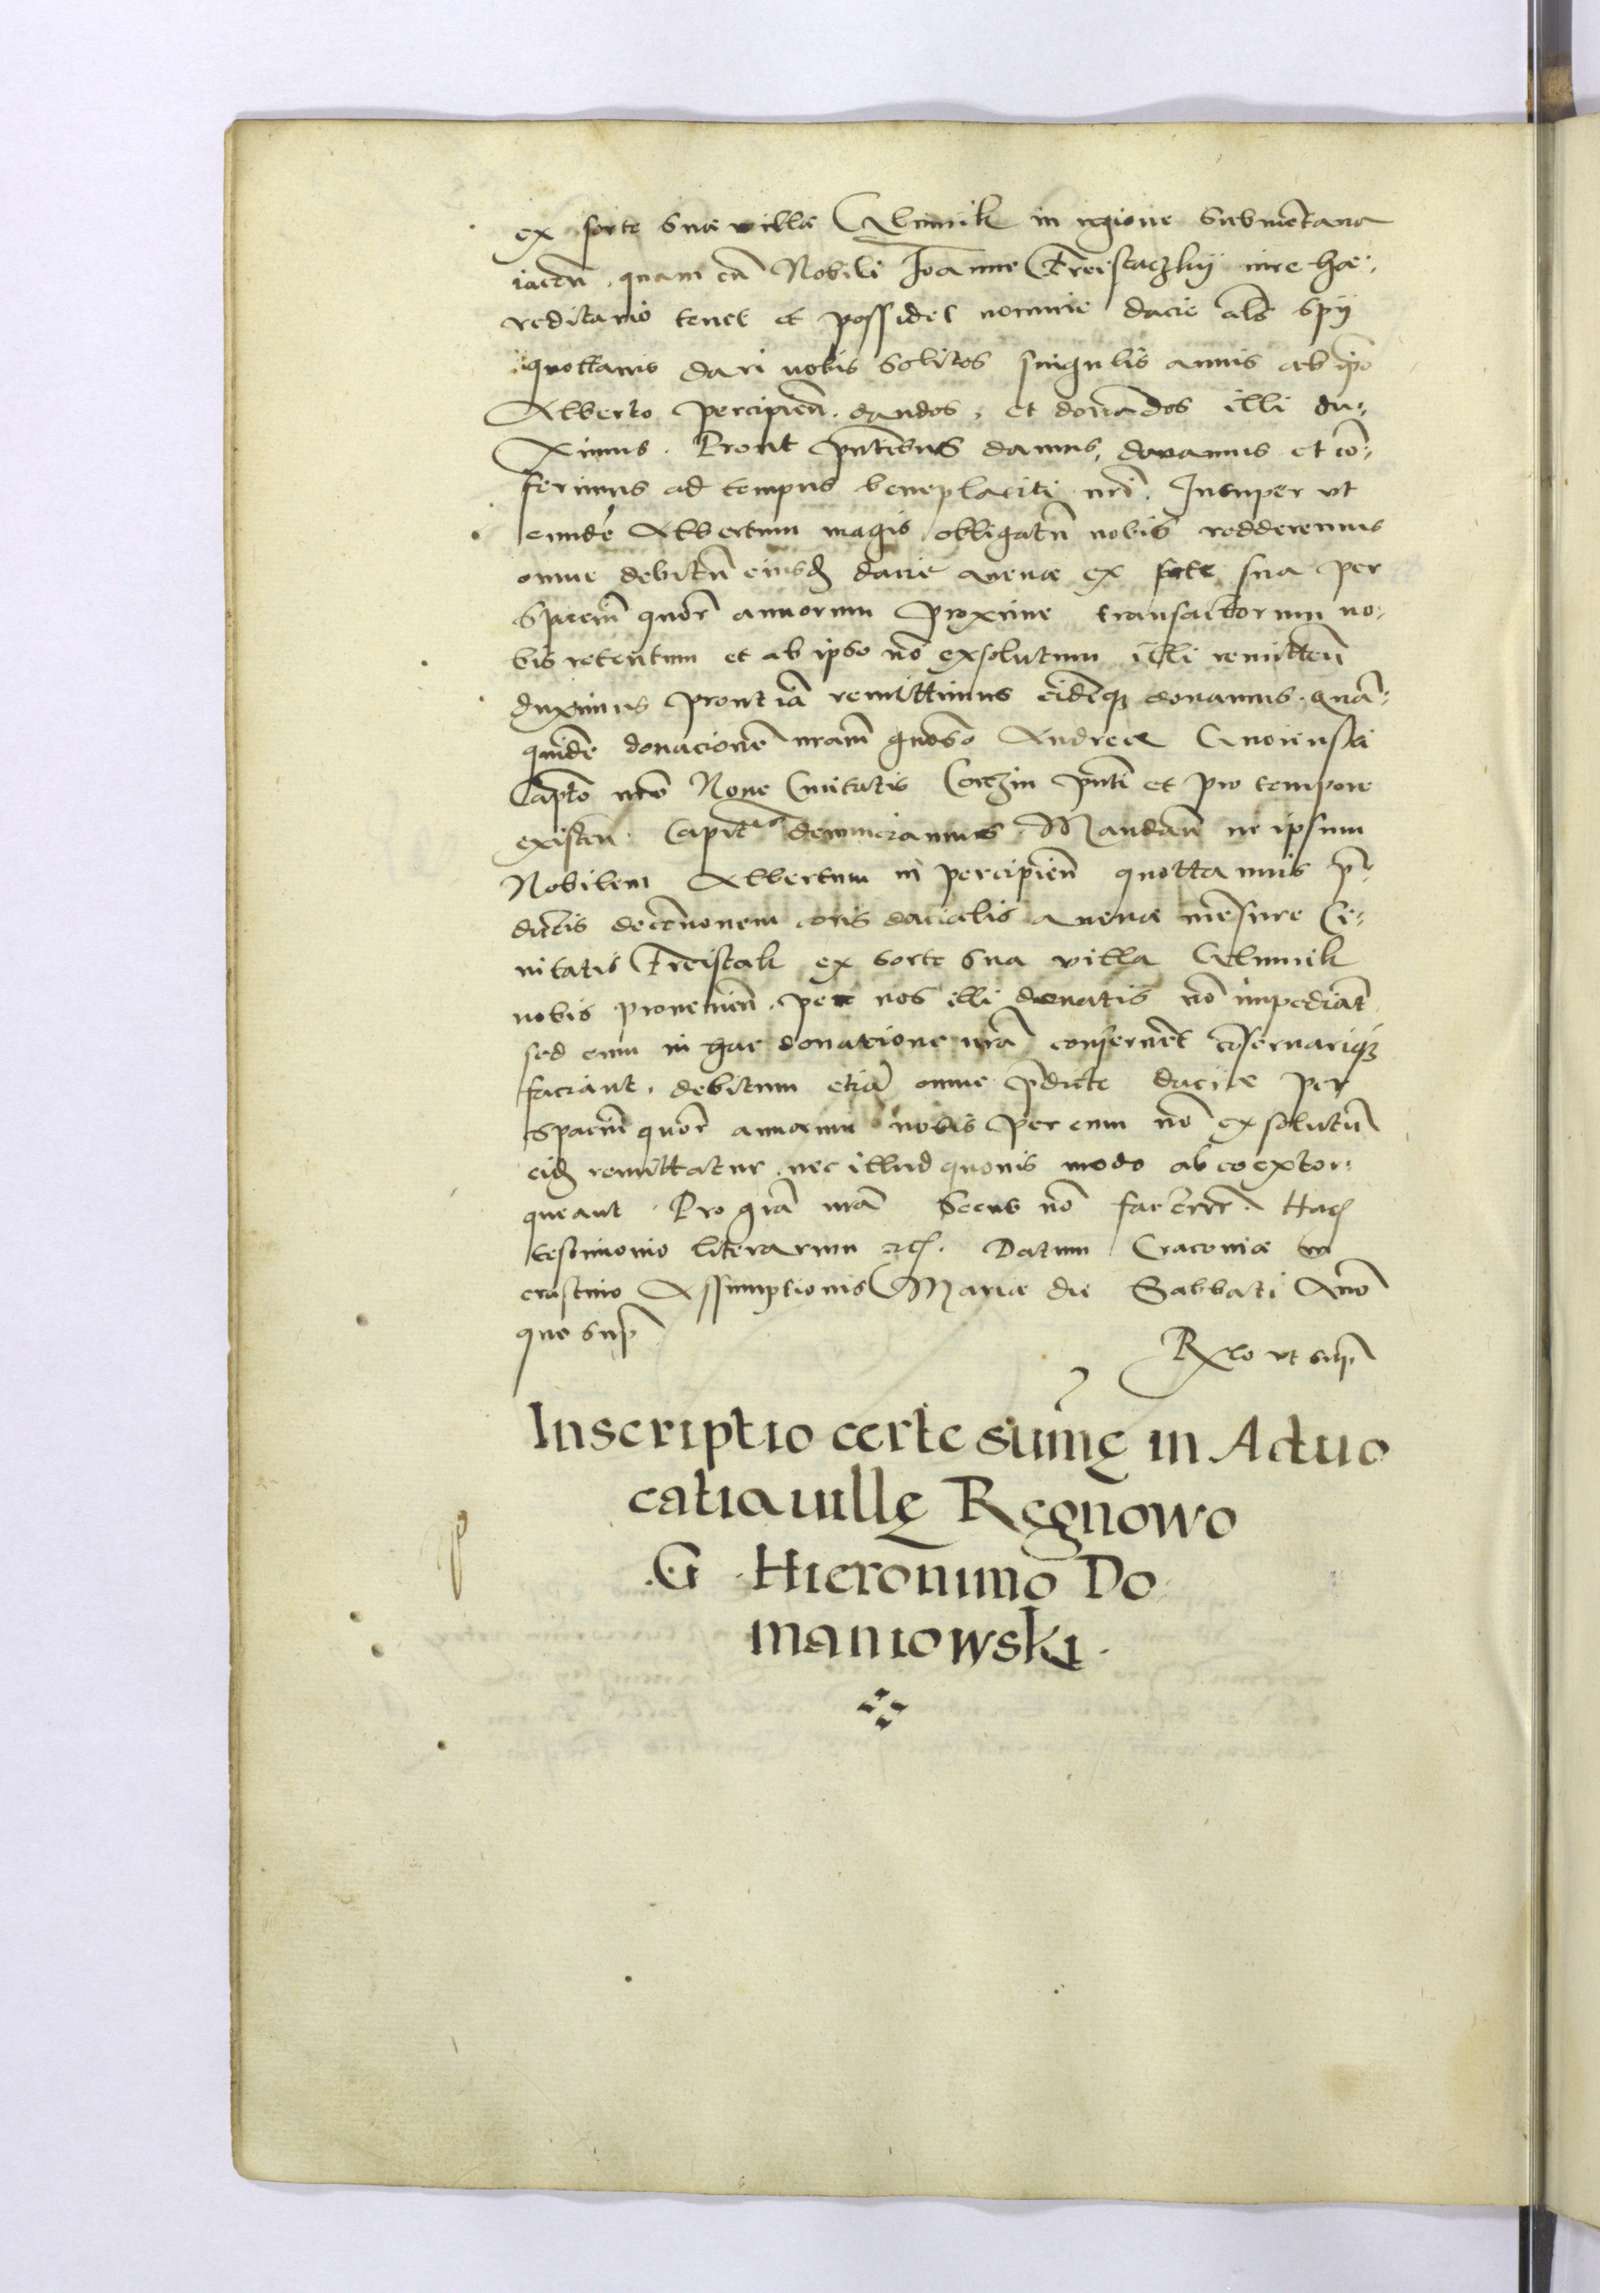 ex sorte sua villa Glinnik in regione submontana
iaceñ. quam cũ Nobili Joanne Freistaczkij iure hæ:
reditario tenet et possidet nomine dacie als spij
quottanis dari nobis solitos singulis annis ab ipo
Alberto percipieñ. dandos, et donãdos illi du:
ximus. Prout pñtibus damus, donamus et cõ:
ferimus ad tempus beneplaciti nri. Insuper vt
eundẽ Albertum magis obligatũ nobis redderemus
omne debitũ eiusd dacie avenæ ex sorte sua per
spaciũ quor annorum proxime transactorum no:
bis retentum et ab ipso nõ exsolutum illi remitteñ
duximus prout iã remittimus eidẽq donamus. quã:
quidẽ donacionẽ nram gnoso Andreæ
Capto nro Nove Civitatis Corczin pñti et pro tempore
existeñ. Capit denunciamus. Mandañ ne ipsum
Nobilem Albertum in percipieñ quottannis p̃:
dictis decẽ coris dacialis avenæ mẽsure Ci:
vitatis Freistak ex sorte sua villa Glinnik
nobis provenieñ. per nos illi donatis nõ impediãt
sed eum in hac donatione nrã conservẽt cõservariq
faciant. debitum etiã omne p̃dicte daciæ per
spaciũ quor annorum nobis per eum nõ exsolutũ
eid remittatur, nec illud quovis modo ab eo extor:
queant. Pro grã nrã secus nõ factur. Har
testimonio literarum etc. Datum Cracoviæ in
crastino Assumptionis Mariæ die Sabbati Ano
quo sup
Rxlo vt sup
Inscriptio certe sumę in Aduo
catia uillę Regnowo
.G. Hieronimo Do
maniowski.